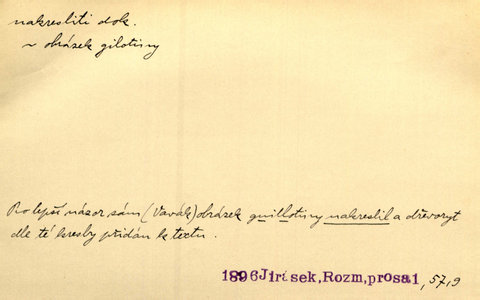 nakresliti dok.
~ obrázek gilotiny
Pro lepší názor sám (Vavák) obrázek guillotiny nakreslil a dřevoryt
dle té kresby přidán k textu.
1896 Jirásek, Rozm, prosa 1, 57,9